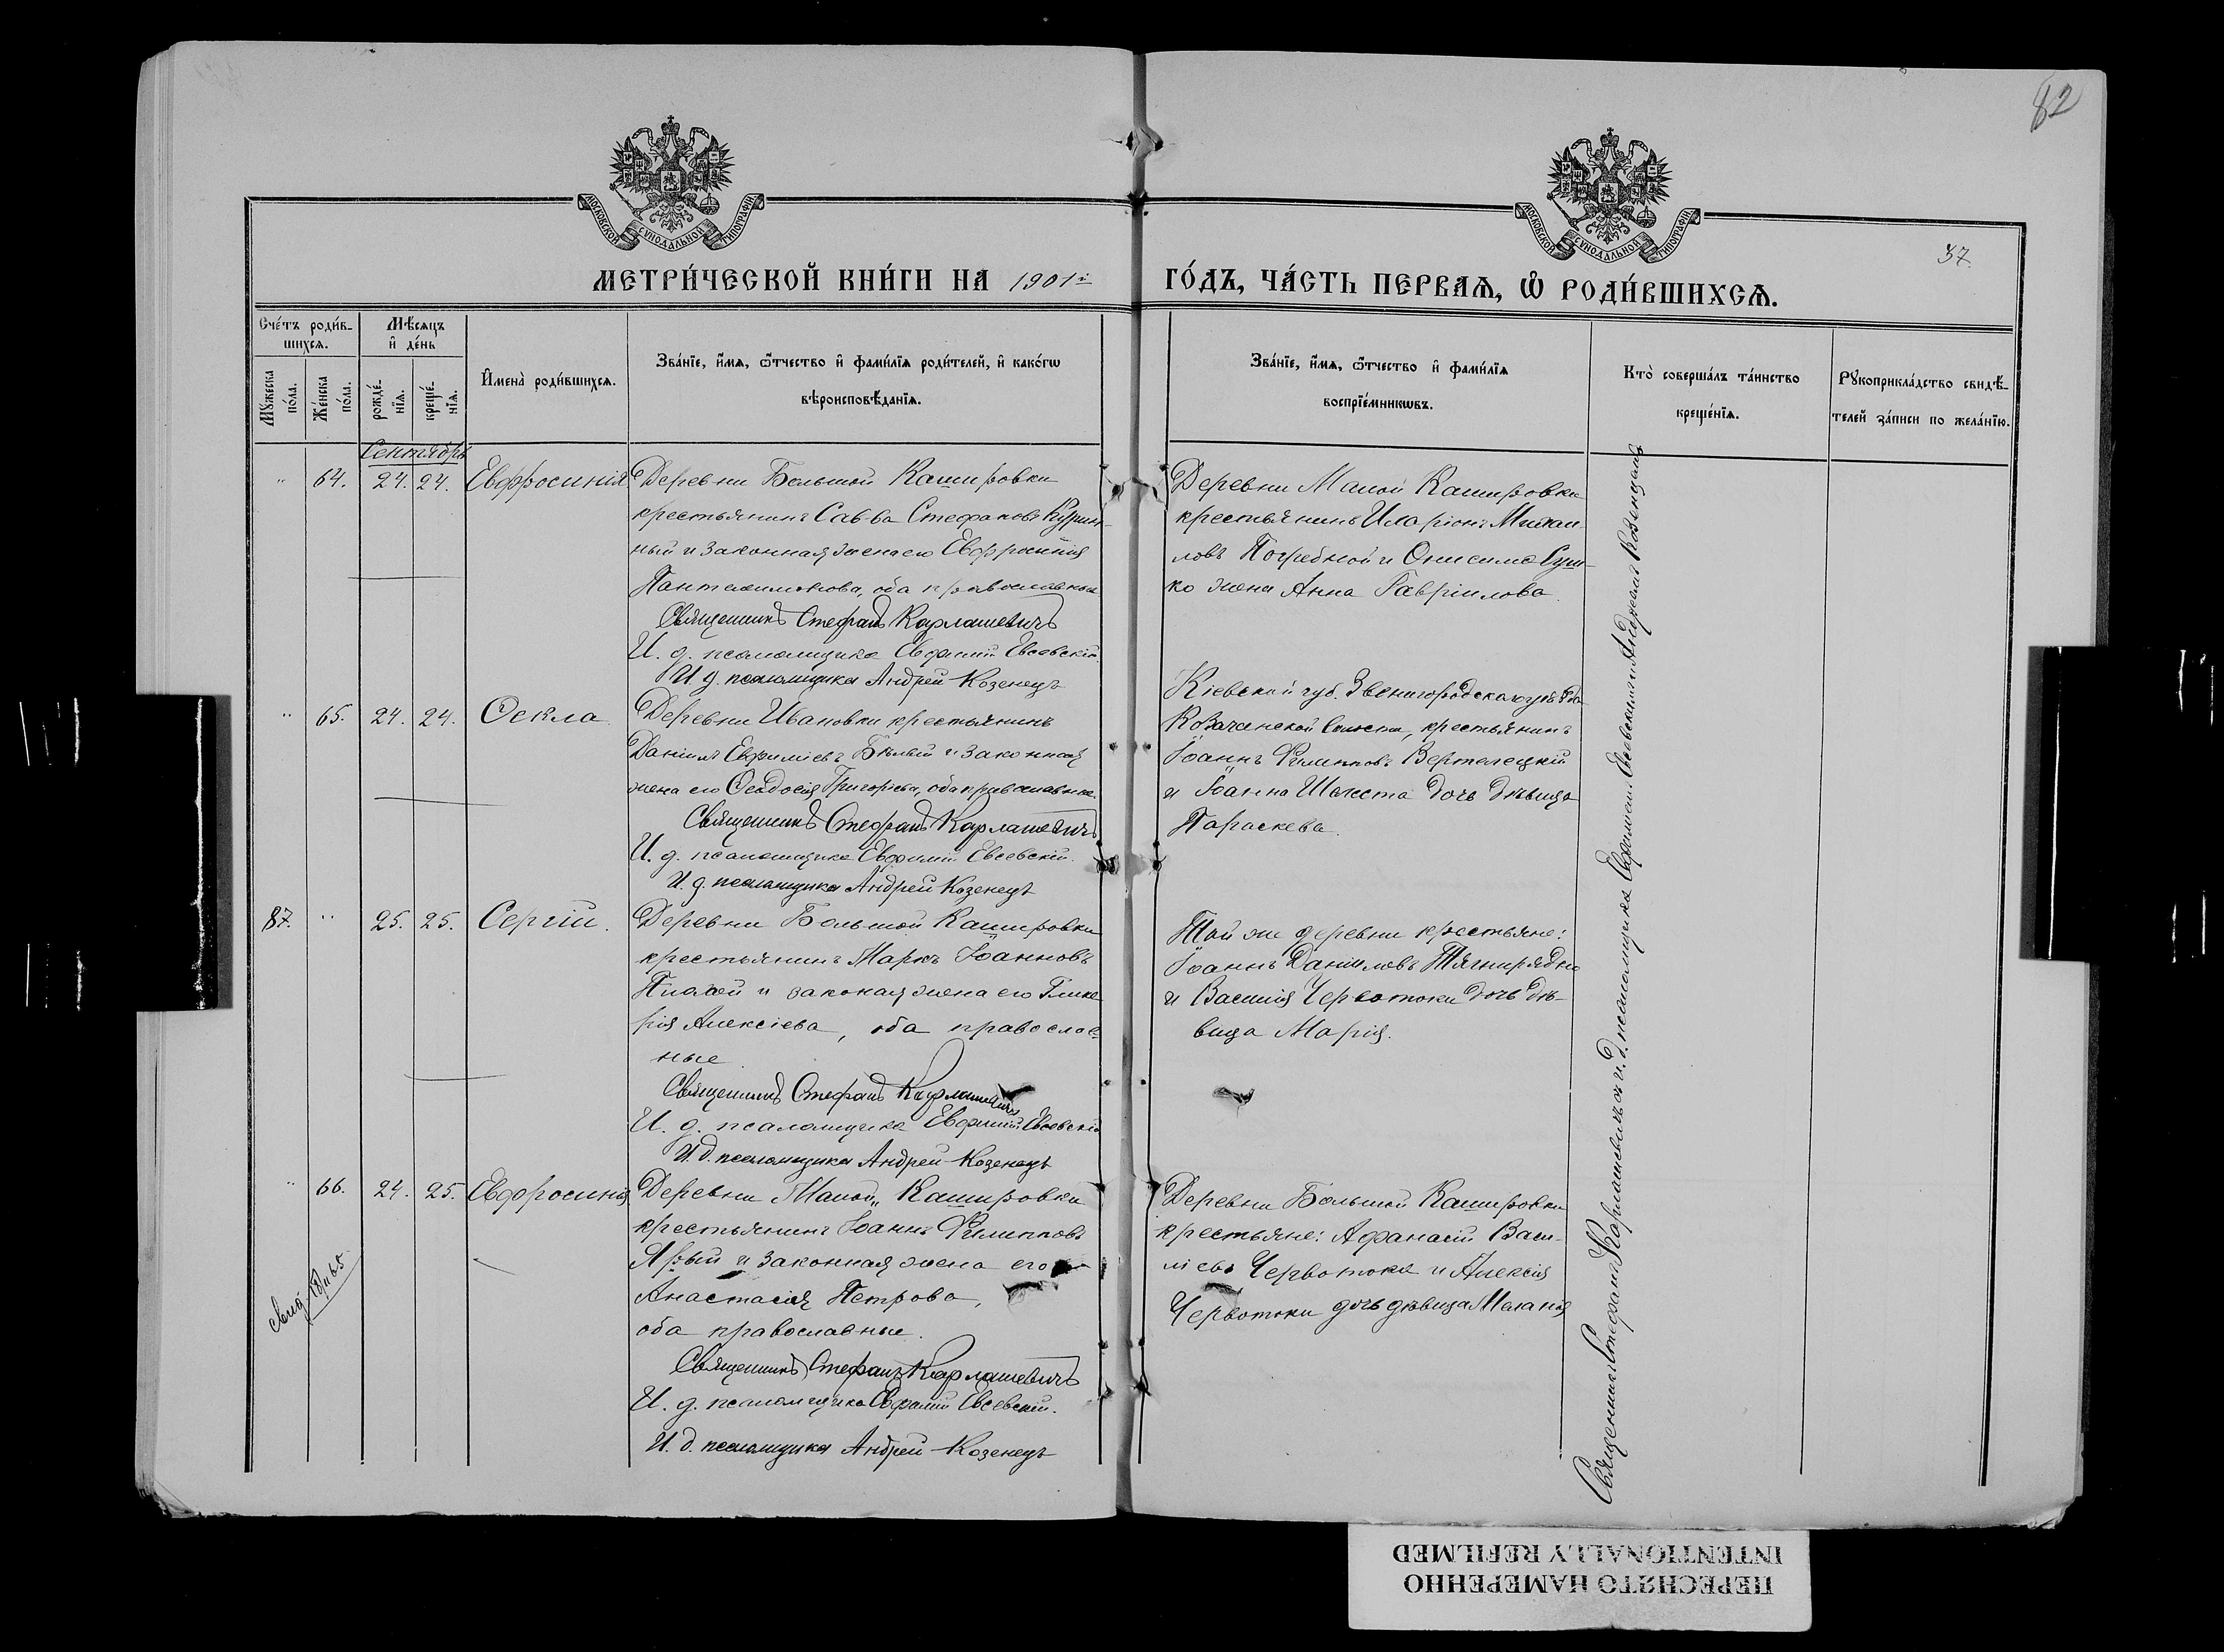 82
МОСКОВСКОЙ СУНОДАЛЬНОЙ ТИПОГРАФІИ
МОСКОВСКОЙ СУНОДАЛЬНОЙ ТИПОГРАФІИ
37.
МЕТРИ́ЧЕСКОЙ КНИ́ГИ НА 1901й ГО́ДЪ, ЧА́СТЬ ПЕРВАѦ, Ѡ РОДИ́ВШИХСѦ.
Сче́тъ роди́в-
шихсѧ.
Мѣ́сѧцъ
и де́нь
Мꙋ́жеска по́ла.
Же́нска по́ла.
рожде́-
нїѧ.
креще́-
нїѧ.
Имена̀ роди́вшихсѧ.
Зва́нїе, и́мѧ, ѻ́тчество и фами́лїѧ роди́телей, и како́гѡ
вѣроисповѣ́данїѧ.
Зва́нїе, и́мѧ, ѻ́тчество и фами́лїѧ
воспрїе́мникѡвъ.
Кто̀ соверша́лъ та́инство
креще́нїѧ.
Рꙋкоприкла́дство свидѣ́-
телей за́писи по жела́нїю.
Сентябрь
" 64. 24. 24. Евфросинія
Деревни Большой Кашировки
крестьянинъ Савва Стефановъ
ный и законная жена его Евфросинія
Пантелеимонова, оба православные
Священникъ Стефанъ Карлашевичъ
И. д. псаломщика Евфимій Евсевскій.
И д. псаломщика Андрей Козенецъ
Деревни Малой Кашировки
крестьянинъ Иларіонъ Михаи-
ловъ Погребной и Онисима Суш-
ко жена Анна Гавріилова.
" 65. 24. 24. Ѳекла
Деревни Ивановки крестьянинъ
Даніилъ Евфиміевъ Бѣлый и законная
жена его Ѳеодосія Григорьева, оба православные.
Священникъ Стефанъ Карлашевичъ
И. д. псаломщика Евфимій Евсевскій.
И. д. псаломщика Андрей Козенецъ
Кіевской губ. Звенигородскаго уѣзда
Козачанской волости, крестьянинъ
Іоаннъ Филипповъ Вертелецкій
и Іоанна Шелеста дочь дѣвица
Параскева.
87. " 25. 25. Сергій.
Деревни Большой Кашировки
крестьянинъ Маркъ Іоанновъ
и законая жена его Глике-
рія Алексіева, оба православ-
ные
Священникъ Стефанъ Карлашевичъ
И. д. псаломщика Евфимій Евсевскій
И. д. псаломщика Андрей Козенецъ
Той же деревни крестьяне:
Іоаннъ Даніиловъ Тягнирядно
и Василія Червотоки дочь дѣ-
вица Марія.
" 66. 24. 25. Евфросинія
Деревни Малой Кашировки
крестьянинъ Іоаннъ Филипповъ
Ярый и законная жена его
Анастасія Петрова,
оба православные.
Священникъ Стефанъ Карлашевичъ
И. д. псаломщика Евфимій Евсевскій.
И. д. псаломщика Андрей Козенецъ
Деревни Большой Кашировки
крестьяне: Афанасій Васи-
ліевъ Червотока и Алексія
Червотоки дочь дѣвица Меланія
Священникъ Стефанъ Карлашевичъ съ и. д. псаломщика Евфиміемъ Евсевскимъ и Андреемъ Козенцомъ
ПЕРЕСНЯТО НАМЕРЕННО
INTENTIONALLY REFILMED